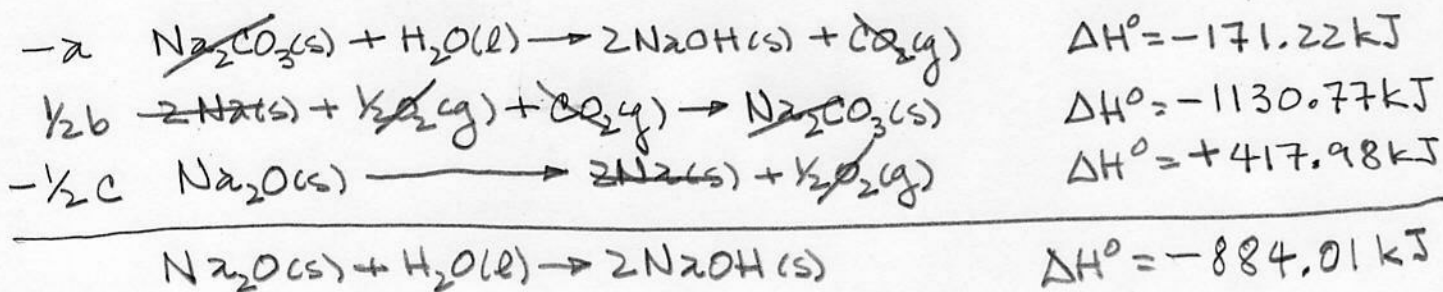 -a Na₂CO₃(s) + H₂O(l) → 2NaOH(s) + CO₂(g) ΔH° = -171.22 kJ
½b 2Na(s) + ½O₂(g) + CO₂(g) → Na₂CO₃(s) ΔH° = -1130.77 kJ
-½c Na₂O(s) → 2Na(s) + ½O₂(g) ΔH° = +417.98 kJ
Na₂O(s) + H₂O(l) → 2NaOH(s) ΔH° = -884.01 kJ